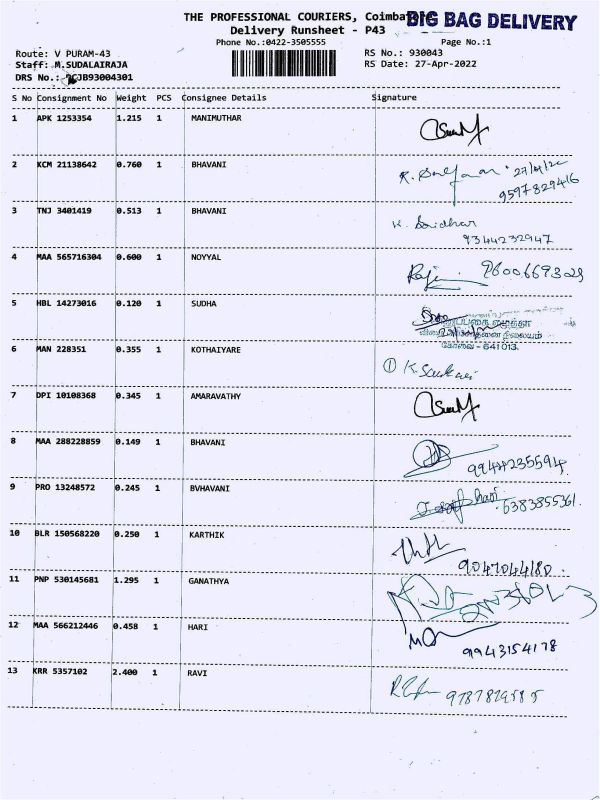 THE PROFESSIONAL COURIERS, Coimbatore
BIG BAG DELIVERY
Delivery Runsheet - P43
Phone No.:0422-3505555 Page No.:1
Route: V PURAM-43 RS No.: 930043
Staff: M.SUDALAIRAJA RS Date: 27-Apr-2022
DRS No.: CJB93004301
S No Consignment No Weight PCS Consignee Details Signature
1 APK 1253354 1.215 1 MANIMUTHAR
2 KCM 21138642 0.760 1 BHAVANI
9597829416
3 TNJ 3401419 0.513 1 BHAVANI K. Sridhar
9344232947
4 MAA 565716304 0.600 1 NOYYAL 9600669329
5 HBL 14273016 0.120 1 SUDHA
கோவை - 641013.
6 MAN 228351 0.355 1 KOTHAIYARE
7 DPI 10108368 0.345 1 AMARAVATHY
8 MAA 288228859 0.149 1 BHAVANI
9944235594
9 PRO 13248572 0.245 1 BVHAVANI 6383855361.
10 BLR 150568220 0.250 1 KARTHIK
9047044180.
11 PNP 530145681 1.295 1 GANATHYA
12 MAA 566212446 0.458 1 HARI
9943154178
13 KRR 5357102 2.400 1 RAVI 9787829585